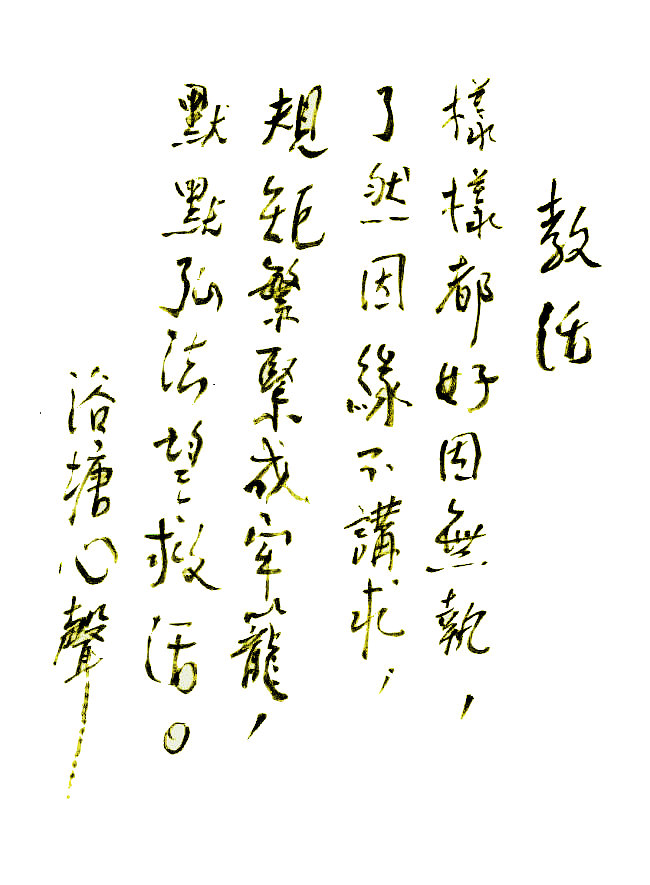 教活
樣樣都好因無執，
了然因緣不講求，
規矩繁緊成牢籠，
默默弘法望救活。
浴塘心聲